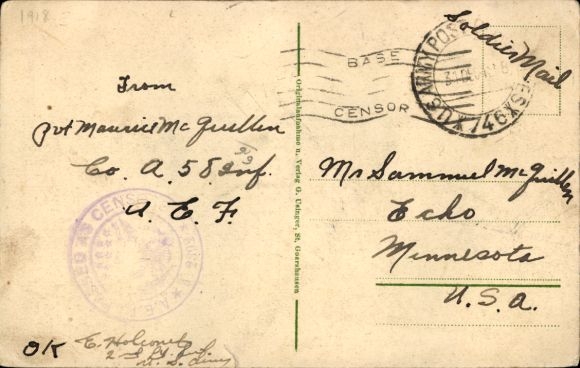 1918
Soldier Mail
BASE
CENSOR
U.S. ARMY POST
746
From
Pvt Maurice McQuillen
Co. A. 58 Inf.
A. E. F.
Mr Sammuel McQuillen
Echo
Minnesota
U.S.A.
Originalaufnahme u. Verlag G. Uzinger, St. Goarshausen
AS CENSORED
A.E.F.
OK E. Holcomb
2nd Lt. Inf.
U. S. Army